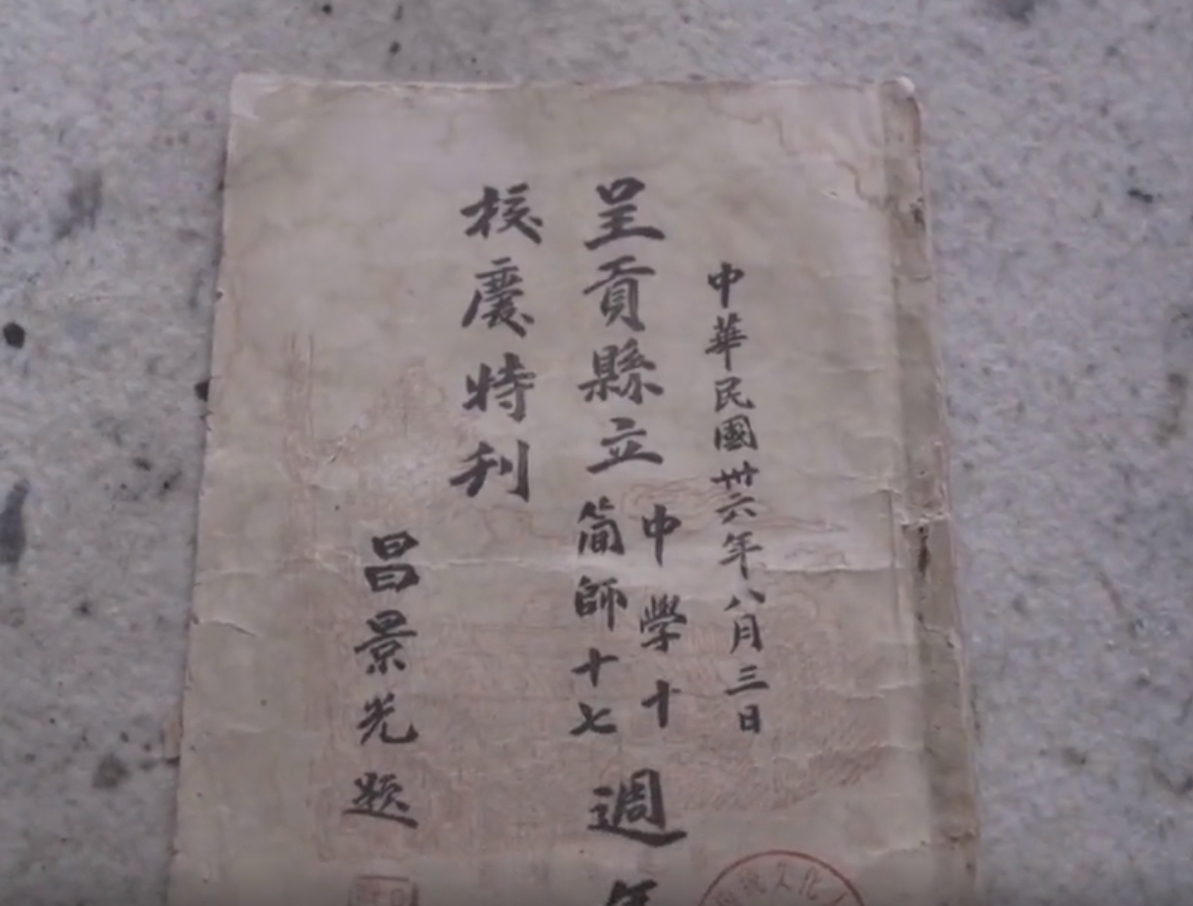 中華民國卅六年八月三日
呈貢縣立
中學十
簡師十七
週年
校慶特刊
昌景光題
文化